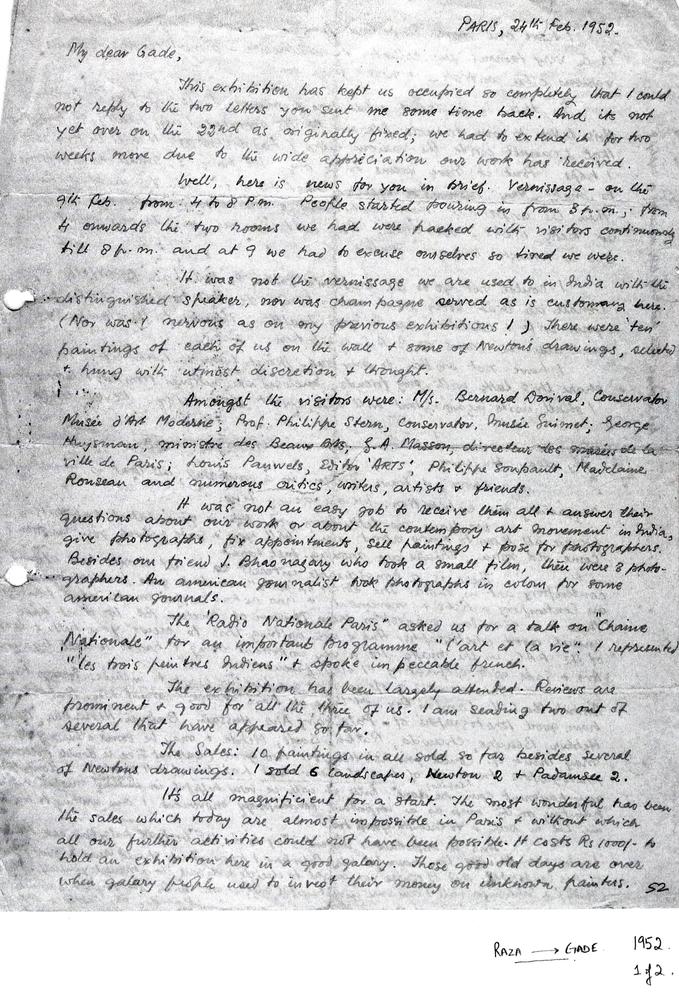 PARIS, 24th Feb. 1952.
My dear Gade,
This exhibition has kept us occupied so completely that I could
not reply to the two letters you sent me some time back. And its not
yet over on the 22nd as originally fixed; we had to extend it for two
weeks more due to the wide appriciation our work has received.
Well, here is news for you in brief. Vernissage - on the
9th Feb. from 4 to 8 P.m. People started pouring in from 3 p.m.; from
4 onwards the two rooms we had were packed with visitors continuously
till 8 p.m. and at 9 we had to excuse ourselves so tired we were.
It was not the vernissage we are used to in India with the
distinguished speaker, nor was champagne served as is customary here.
(Nor was I nervous as on my previous exhibitions!) There were ten
paintings of each of us on the wall + some of Newtons drawings, selected
+ hung with utmost discretion + thought.
Amongst the visitors were: M/s. Bernard Dorival, Conservator
Musée d'Art Moderne; Prof. Philippe Stern, Conservator, Musée Guimet; George
Huysman, ministre des Beaux Arts, G.A. Masson, directeur des musées de la
ville de Paris; Louis Pauwels, Editor 'ARTS', Philippe Soupault, Madelaine
Rouseau and numerous critics, writers, artists + friends.
It was not an easy job to receive them all + answer their
questions about our work or about the contempory art movement in India,
give photographs, fix appointments, sell paintings + pose for photographers.
Besides our friend J. Bhaonagary who took a small film, there were 3 photo-
graphers. An american journalist took photographs in colour for some
american journals.
The 'Radio Nationale Paris" asked us for a talk on "Chaine
Nationale" for an important programme "l'art et la vie". I represented
"les trois peintres Indiens" + spoke impeccable french.
The exhibition has been largely attended. Reviews are
prominent + good for all the three of us. I am sending two out of
several that have appeared so far.
The Sales: 10 paintings in all sold so far besides several
of Newtons drawings. I sold 6 landscapes, Newton 2 + Padamsee 2.
It's all magnificient for a start. The most wonderful has been
the sales which today are almost impossible in Paris + without which
all our further activities could not have been possible. It costs Rs 1000/- to
hold an exhibition here in a good galary. Those good old days are over
when galary people used to invest their money on unknown painters.
52
RAZA → GADE 1952.
1 of 2.